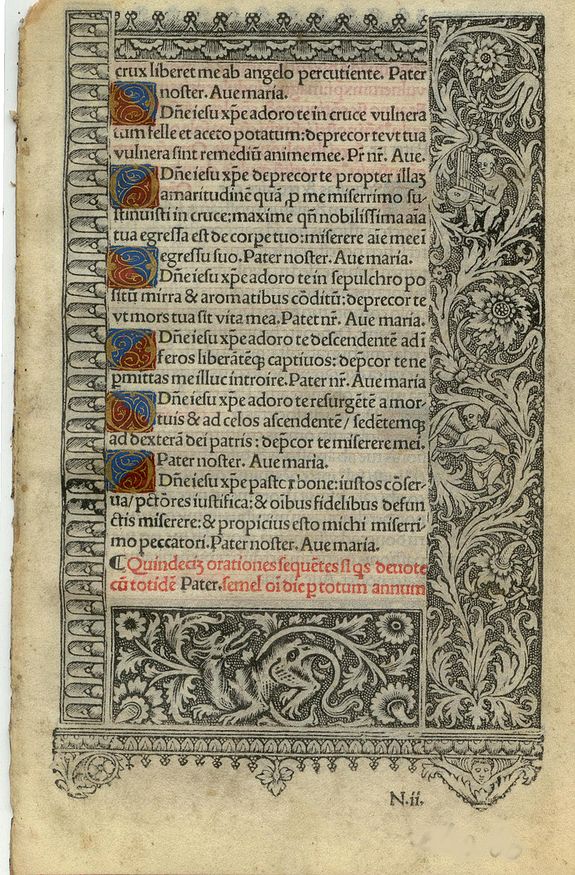 crux liberet me ab angelo percutiente. Pater
noster. Aue maria.
Dñe iesu xp̃e adoro te in cruce vulnera
tum felle et aceto potatum: deprecor te vt tua
vulnera sint remediũ anime mee. Pr̃ nr̃. Aue.
Dñe iesu xp̃e deprecor te propter illaꝫ
amaritudinẽ quã ꝓ me miserrimo su-
stinuisti in cruce: maxime qñ nobilissima aĩa
tua egressa est de corpe tuo: miserere aĩe mee ĩ
egressu suo. Pater noster. Aue maria.
Dñe iesu xp̃e adoro te in sepulchro po
situ mirra & aromatibus cõditũ: deprecor te
vt mors tua sit vita mea. Pater nr̃. Aue maria.
Dñe iesu xp̃e adoro te descendentẽ ad ĩ
feros liberãtẽqꝫ captiuos: dep̃cor te ne
ꝑmittas me illuc introire. Pater nr̃. Aue maria
Dñe iesu xp̃e adoro te resurgẽtẽ a mor-
tuis & ad celos ascendentẽ / sedẽtemqꝫ
ad dexterã dei patris: dep̃cor te miserere mei.
Pater noster. Aue maria.
Dñe iesu xp̃e pastor bone: iustos cõser-
ua / pctõres iustifica: & oĩbus fidelibus defun
ctis miserere: & propicius esto michi miserri-
mo peccatori. Pater noster. Aue maria.
¶ Quindeciꝫ orationes sequẽtes si q̃s deuote
cũ totidẽ Pater. semel oĩ die ꝑ totum annum
N.ii.